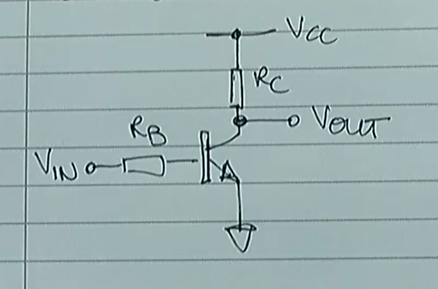 VCC
RC
VOUT
RB
VIN